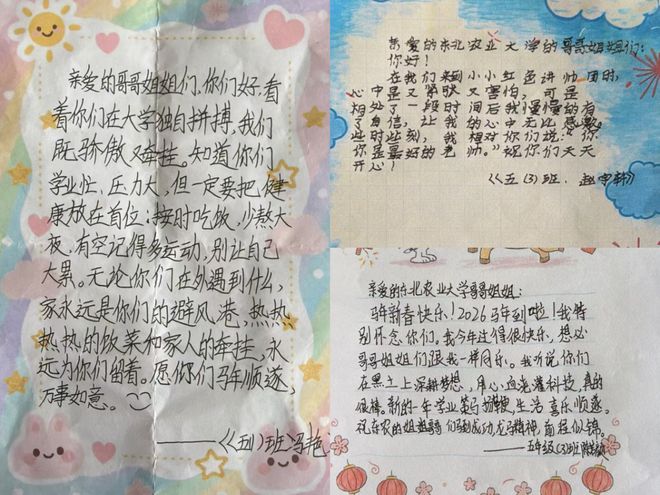 亲爱的哥哥姐姐们,你们好,看
着你们在大学独自拼搏,我们
既骄傲又牵挂。知道你们
学业忙、压力大,但一定要把健
康放在首位:按时吃饭,少熬大
夜,有空记得多运动,别让自己
太累。无论你们在外遇到什么,
家永远是你们的避风港,热热
热热的饭菜和家人的牵挂,永
远为你们留着。愿你们马年顺遂,
万事如意。
——《五(1)班 冯艳
亲爱的东北农业大学的哥哥姐姐们:
你好!
在我们来到小小红色讲师团时,
心中是又紧张又害怕,可是
相处了一段时间后我慢慢的有
了自信,让我的心中无比感激
此时此刻,我想对你们说:“你
你是最好的老师。”祝你们天天
开心!
《五(3)班、赵
亲爱的东北农业大学哥哥姐姐:
马年新春快乐!2026马年到啦!我特
别怀念你们。我今年过得很快乐,想必
哥哥姐姐们跟我一样同乐。我听说你们
在黑土上深耕梦想,用心血浇灌科技,真的
很棒。新的一年学业策马扬鞭,生活喜乐顺遂。
祝东农的姐姐哥哥们马到成功龙马精神,前程似锦。
——五年级(3)班